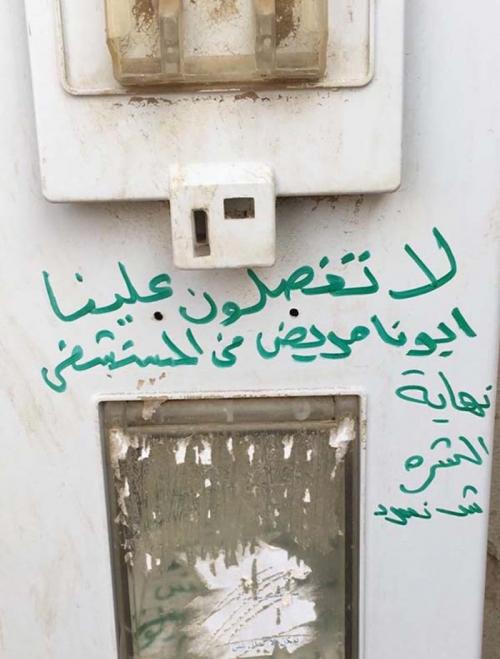 لا تفصلون علينا
ابونا مريض في المستشفى
نهاية
الشهر
نسدد